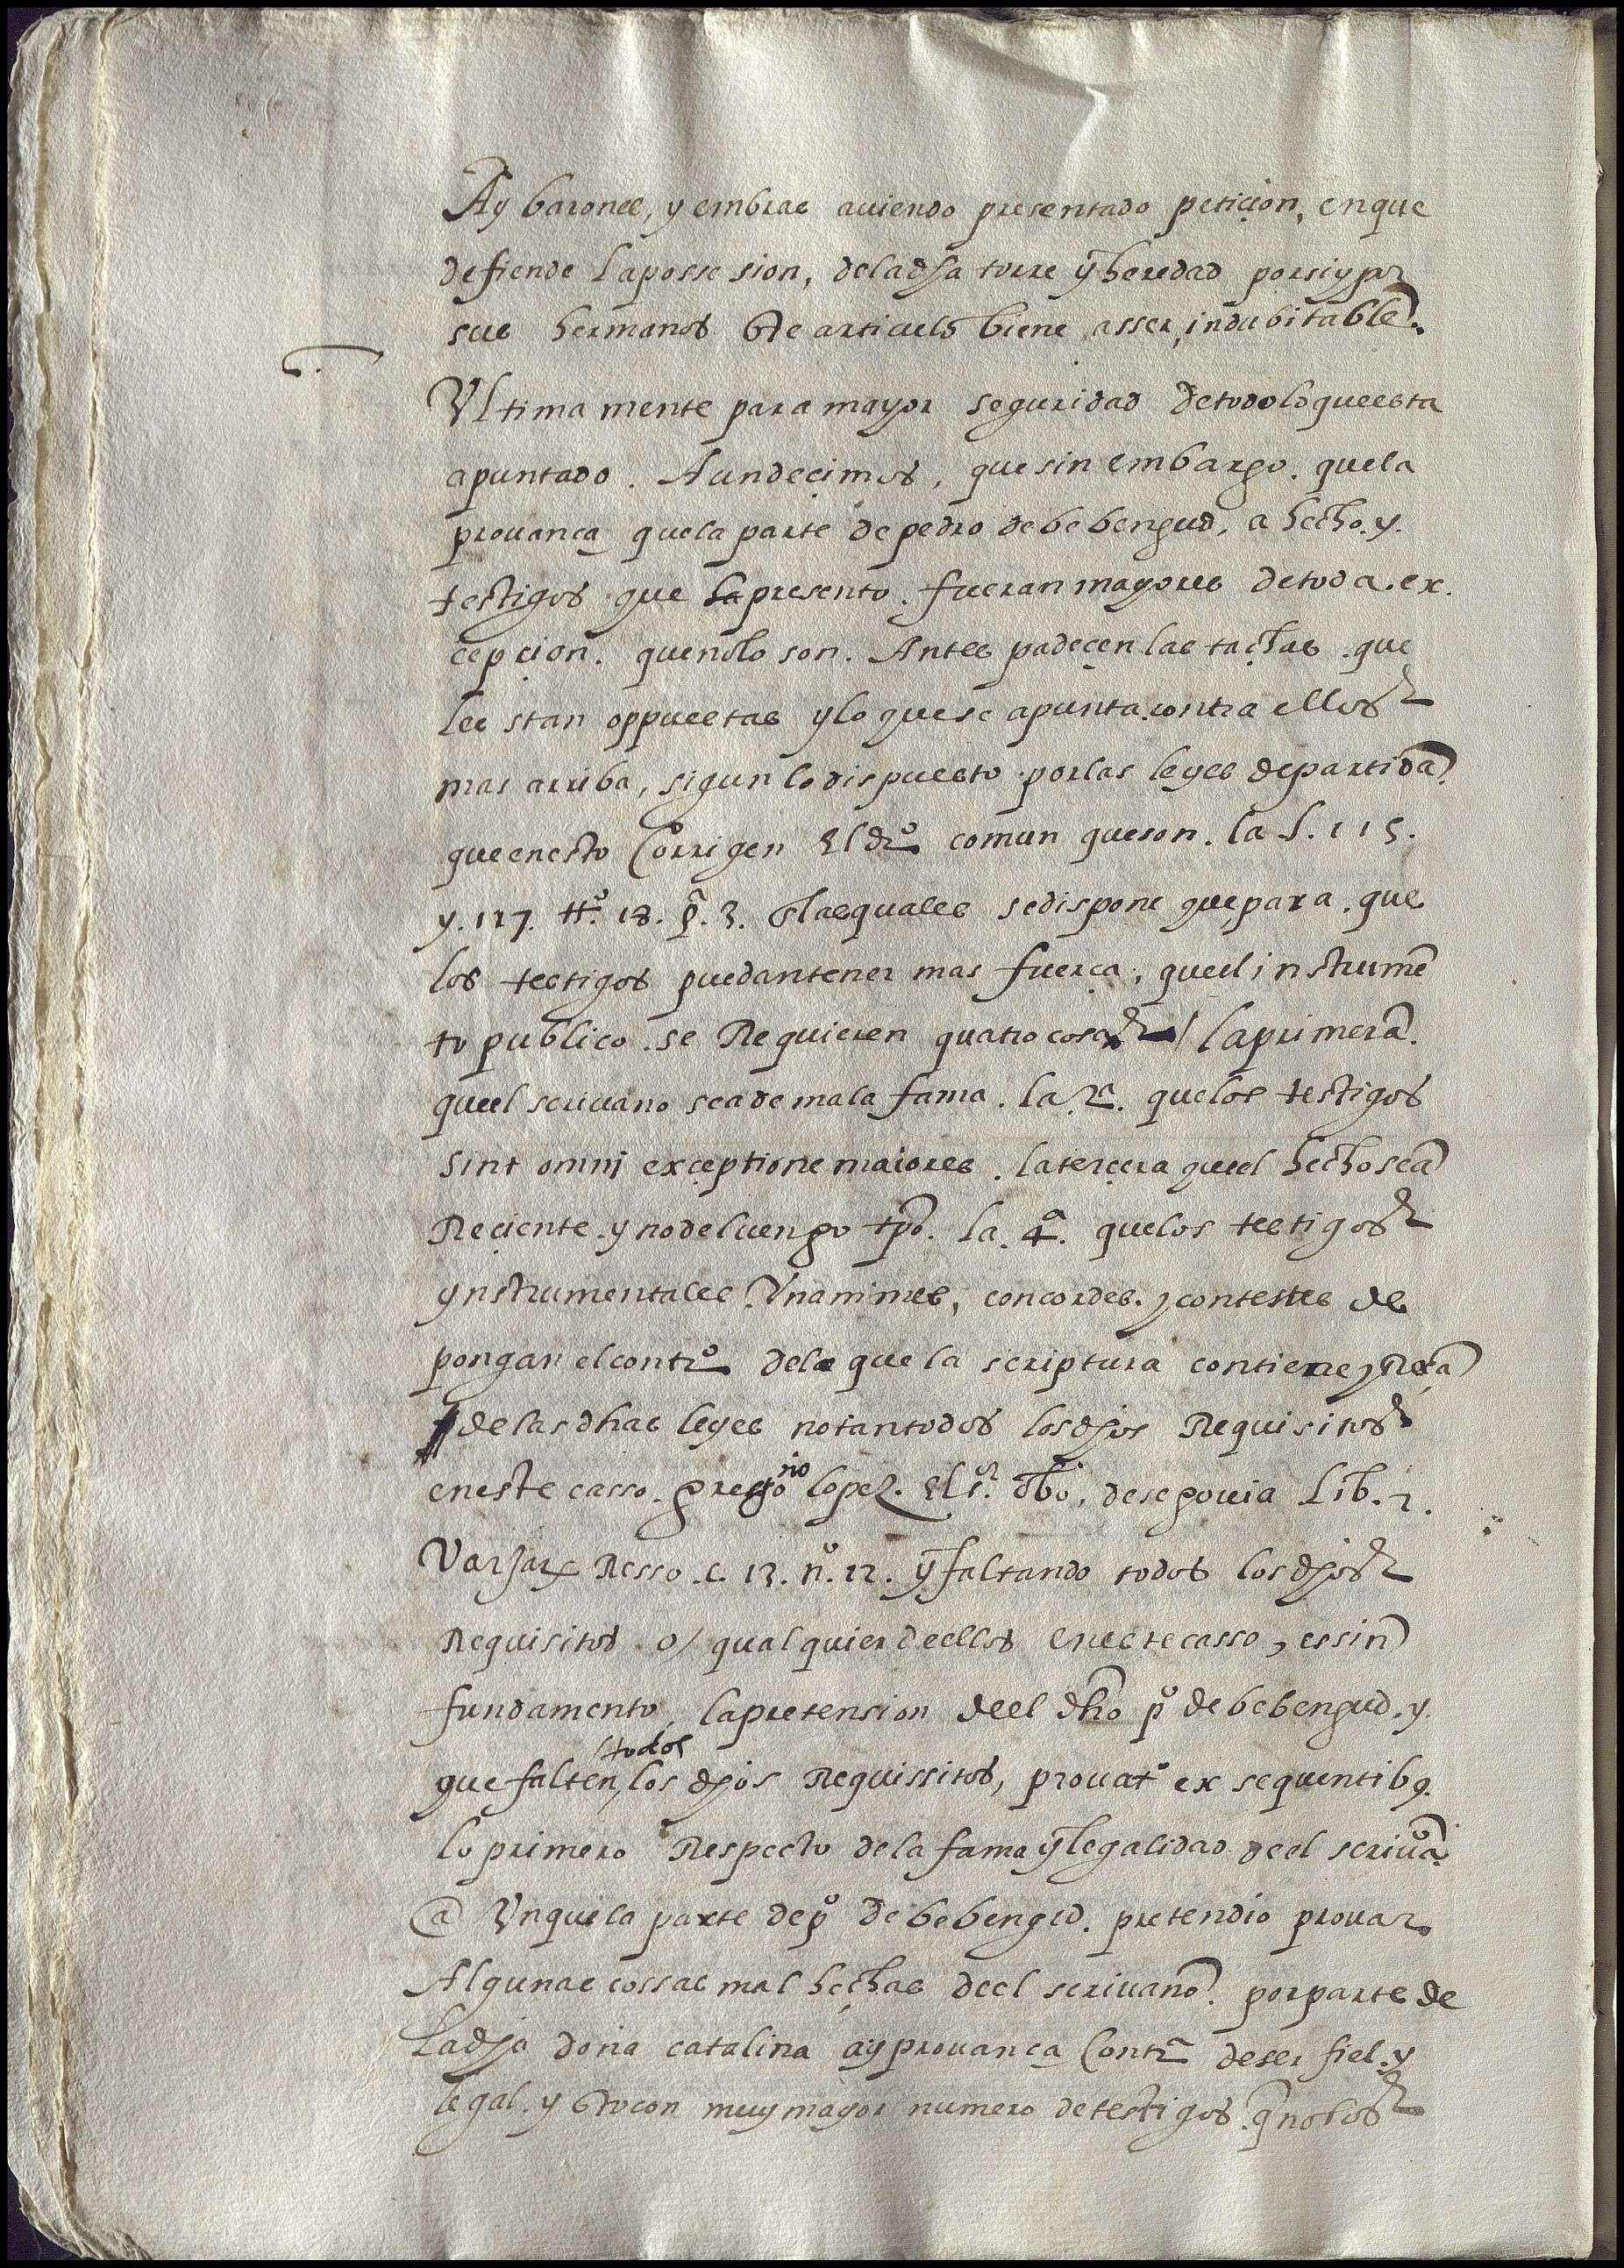 Ay barones, y embras auiendo presentado peticion, enque
defiende laposse sion, deladha torre y heredad porsiypor
sus hermanos este articulo biene asser, indubitable.
Vltima mente para mayor seguridad detodoloqueesta
apuntado. Aundecimos, que sin embargo. quela
prouança quela parte de pedro debebengud, a hecho. y.
testigos que presento. fueran mayores detoda. ex.
cepçion. quenolo son. Antes padeçen las tachas. que
les stan oppuestas yloquese apunta. contra ellos
mas arriba, sigun lodispuesto porlas leyes departida
queenesto Corrigen El dro comun queson. la l. 115.
y. 117. tto. 18. pa. 3. Enlasquales sedispone que, para. que
los testigos puedantener mas fuerça, queel instrumẽ
to publico. se Requieren quatro cosas / laprimera.
queel scriuano seade mala fama. la 2a. quelos testigos
sint omni exceptione maiores. laterçera queel hecho sea
Reçiente. y nodeluengo tpo. la. 4a. quelos testigos
ynstrumentales. Vnanimes, concordes. y contestes de
pongan elcontro delo que la scriptura contiene,
delas dhas leyes notantodos losdhos Requisitos
eneste casso. gregorio lopez. El sr. obo. desegouia Lib. 2.
Variar Resso. c. 13. no. 12. y faltando todos losdhos
Requisitos o/ qualquier deellos eneste casso, essin
fundamento, lapretension deel dho po debebengud. y.
que falten, todos los dhos Requissitos, prouatr ex sequentibq.
lo primero Respecto dela fama y legalidad deel scriuao
a Vnquela parte depo debebengud. pretendio prouar
Algunas cossas mal hechas deel scriuano. porparte de
Ladha doña catalina ay prouança Contra deser fiel. y
legal. y esto con muy mayor numero detestigos. q̃ nolos